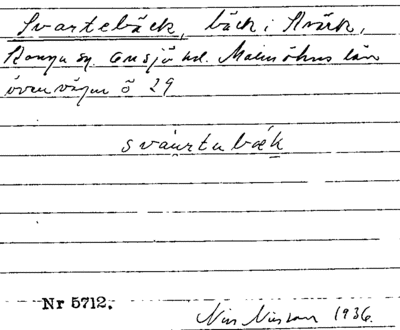 Svartebäck, bäck i Strärk,
Ronga sn. Onsjö hd. Malmöhus län
även vägen ö 29
svaurtubæk
Nr 5712.
Nils Nilsson 1936.